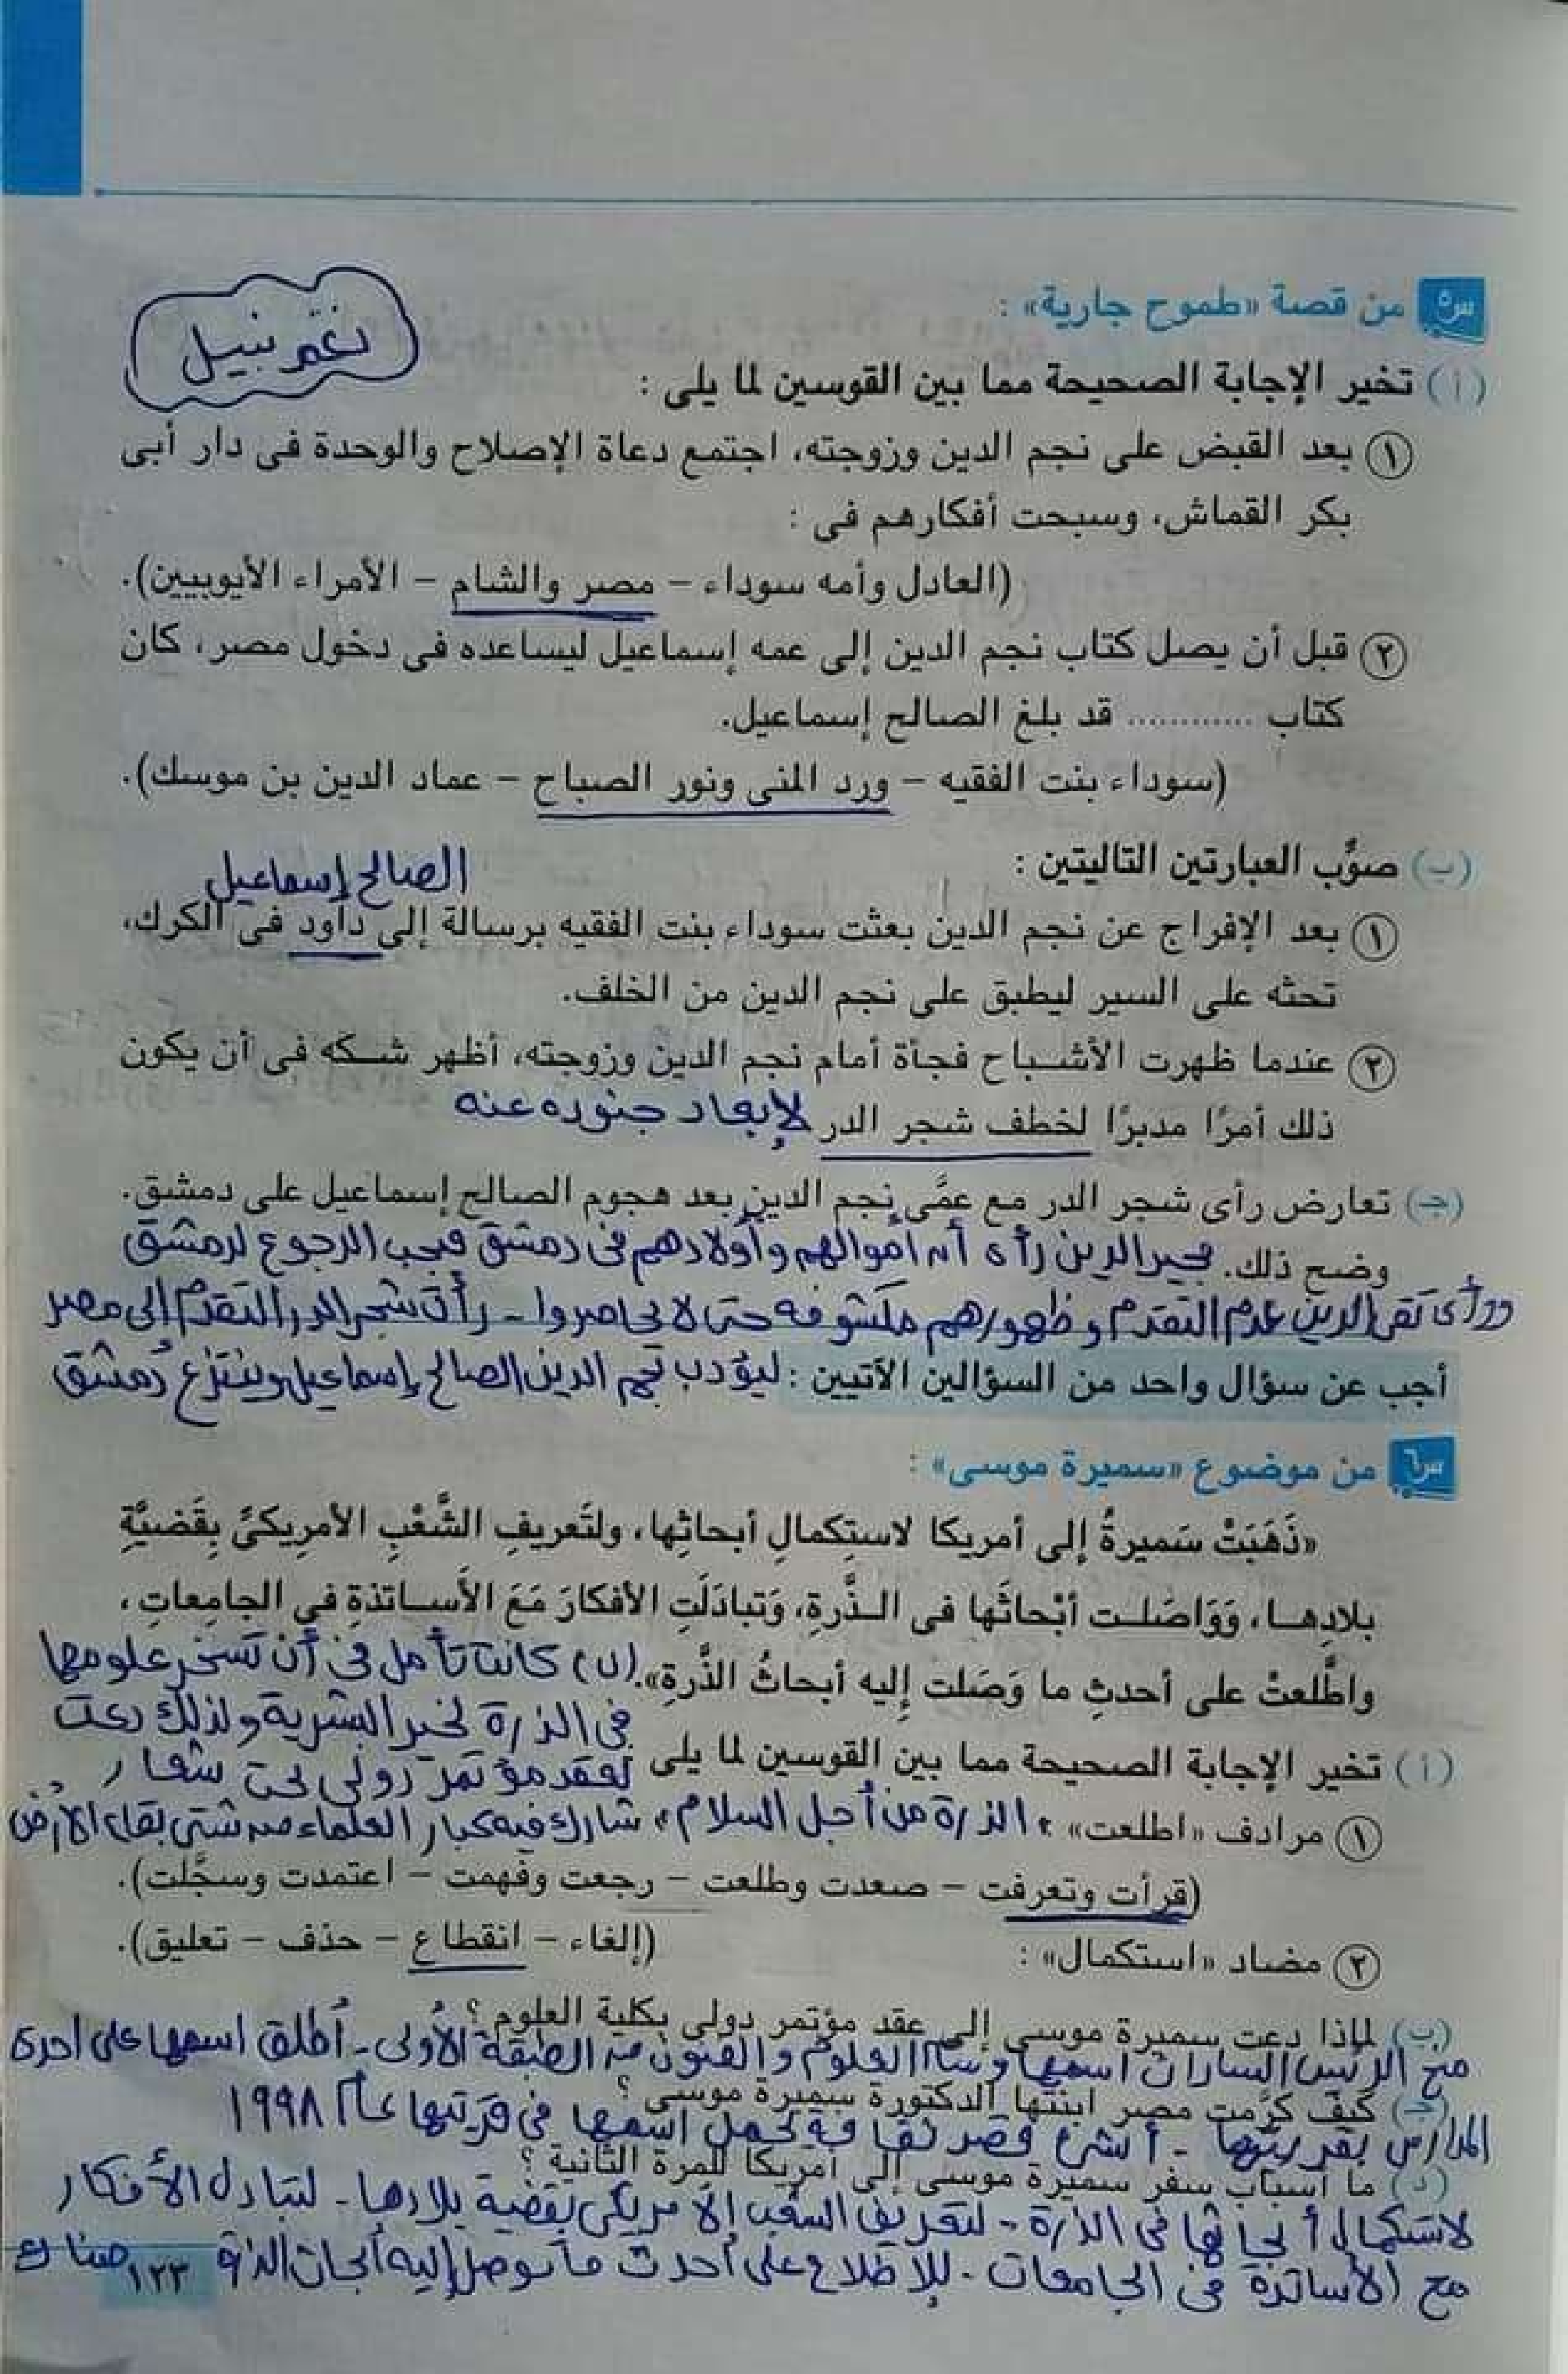 س٥ من قصة «طموح جارية» :
نغم نبيل
(أ) تخير الإجابة الصحيحة مما بين القوسين لما يلى :
١ بعد القبض على نجم الدين وزوجته، اجتمع دعاة الإصلاح والوحدة فى دار أبى
بكر القماش، وسبحت أفكارهم فى :
(العادل وأمه سوداء – مصر والشام – الأمراء الأيوبيين).
٢ قبل أن يصل كتاب نجم الدين إلى عمه إسماعيل ليساعده فى دخول مصر، كان
كتاب ............ قد بلغ الصالح إسماعيل.
(سوداء بنت الفقيه – ورد المنى ونور الصباح – عماد الدين بن موسك).
(ب) صوِّب العبارتين التاليتين :
الصالح إسماعيل
١ بعد الإفراج عن نجم الدين بعثت سوداء بنت الفقيه برسالة إلى داود فى الكرك،
تحثه على السير ليطبق على نجم الدين من الخلف.
٢ عندما ظهرت الأشباح فجأة أمام نجم الدين وزوجته، أظهر شكه فى أن يكون
ذلك أمرًا مدبرًا لخطف شجر الدر لإبعاد جنوده عنه
(جـ) تعارض رأى شجر الدر مع عمَّى نجم الدين بعد هجوم الصالح إسماعيل على دمشق.
وضح ذلك. مجير الدين رأى أن أموالهم وأولادهم فى دمشق فيجب الرجوع لدمشق
ورأى تقى الدين عدم التقدم وظهورهم مكشوفة حتى لا يحاصروا - رأت شجر الدر التقدم إلى مصر
أجب عن سؤال واحد من السؤالين الآتيين : ليؤدب نجم الدين الصالح إسماعيل وينتزع دمشق
س٦ من موضوع «سميرة موسى» :
«ذَهَبَتْ سَميرةُ إلى أمريكا لاستِكمالِ أبحاثِها، ولتَعريفِ الشَّعْبِ الأمرِيكىِّ بِقَضيَّةِ
بلادِهـا، وَوَاصَلـت أبْحاثَها فى الـذَّرةِ، وَتبادَلَتِ الأفكارَ مَعَ الأسـاتذةِ في الجامِعاتِ،
واطَّلعتْ على أحدثِ ما وَصَلت إليه أبحاثُ الذَّرةِ». (ب) كانت تأمل فى أن تسخر علومها
فى الذرة لخير البشرية ولذلك دعت
(أ) تخير الإجابة الصحيحة مما بين القوسين لما يلى لعقد مؤتمر دولى تحت شعار
١ مرادف «اطلعت» : «الذرة من أجل السلام» شارك فيه كبار العلماء من شتى بقاع الأرض
(قرأت وتعرفت – صعدت وطلعت – رجعت وفهمت – اعتمدت وسجَّلت).
٢ مضاد «استكمال» : (إلغاء – انقطاع – حذف – تعليق).
(ب) لماذا دعت سميرة موسى إلى عقد مؤتمر دولى بكلية العلوم ؟
منح الرئيس السادات اسمها وسام العلوم والفنون من الطبقة الأولى - أطلق اسمها على احدى
(جـ) كيف كرَّمت مصر ابنتها الدكتورة سميرة موسى ؟
المدارس بقريتها - أنشئ قصر ثقافة يحمل اسمها فى قريتها عام ١٩٩٨
(د) ما أسباب سفر سميرة موسى إلى أمريكا للمرة الثانية ؟
لاستكمال أبحاثها فى الذرة - لتعريف الشعب الأمريكى بقضية بلادها - لتبادل الأفكار
مع الأساتذة فى الجامعات - للإطلاع على أحدث ما توصل إليه أبحاث الذرة هناك
١٢٣